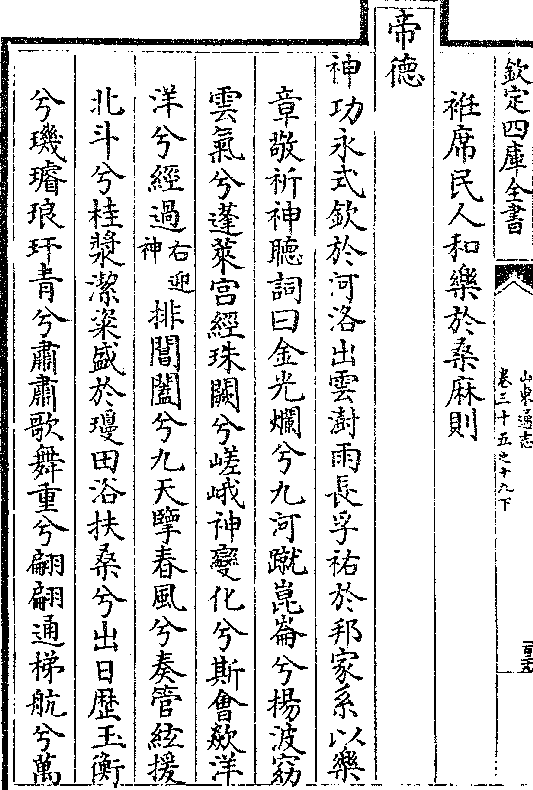 欽定四庫全書
山東通志
卷三十五之十九下
袵席民人和樂於桑麻則
帝德
神功永式欽於河洛出雲澍雨長孚祐於邦家系以樂
章敬祈神聽詞曰金光爛兮九河蹴崑崙兮楊波窈
雲氣兮蓬萊宮經珠闕兮嵯峨神變化兮斯會欻洋
洋兮經過右迎神排閶闔兮九天擘春風兮奏管絃援
北斗兮桂漿潔粢盛於瓊田浴扶桑兮出日歴玉衡
兮璣璿琅玕青兮肅肅歌舞重兮翩翩通梯航兮萬